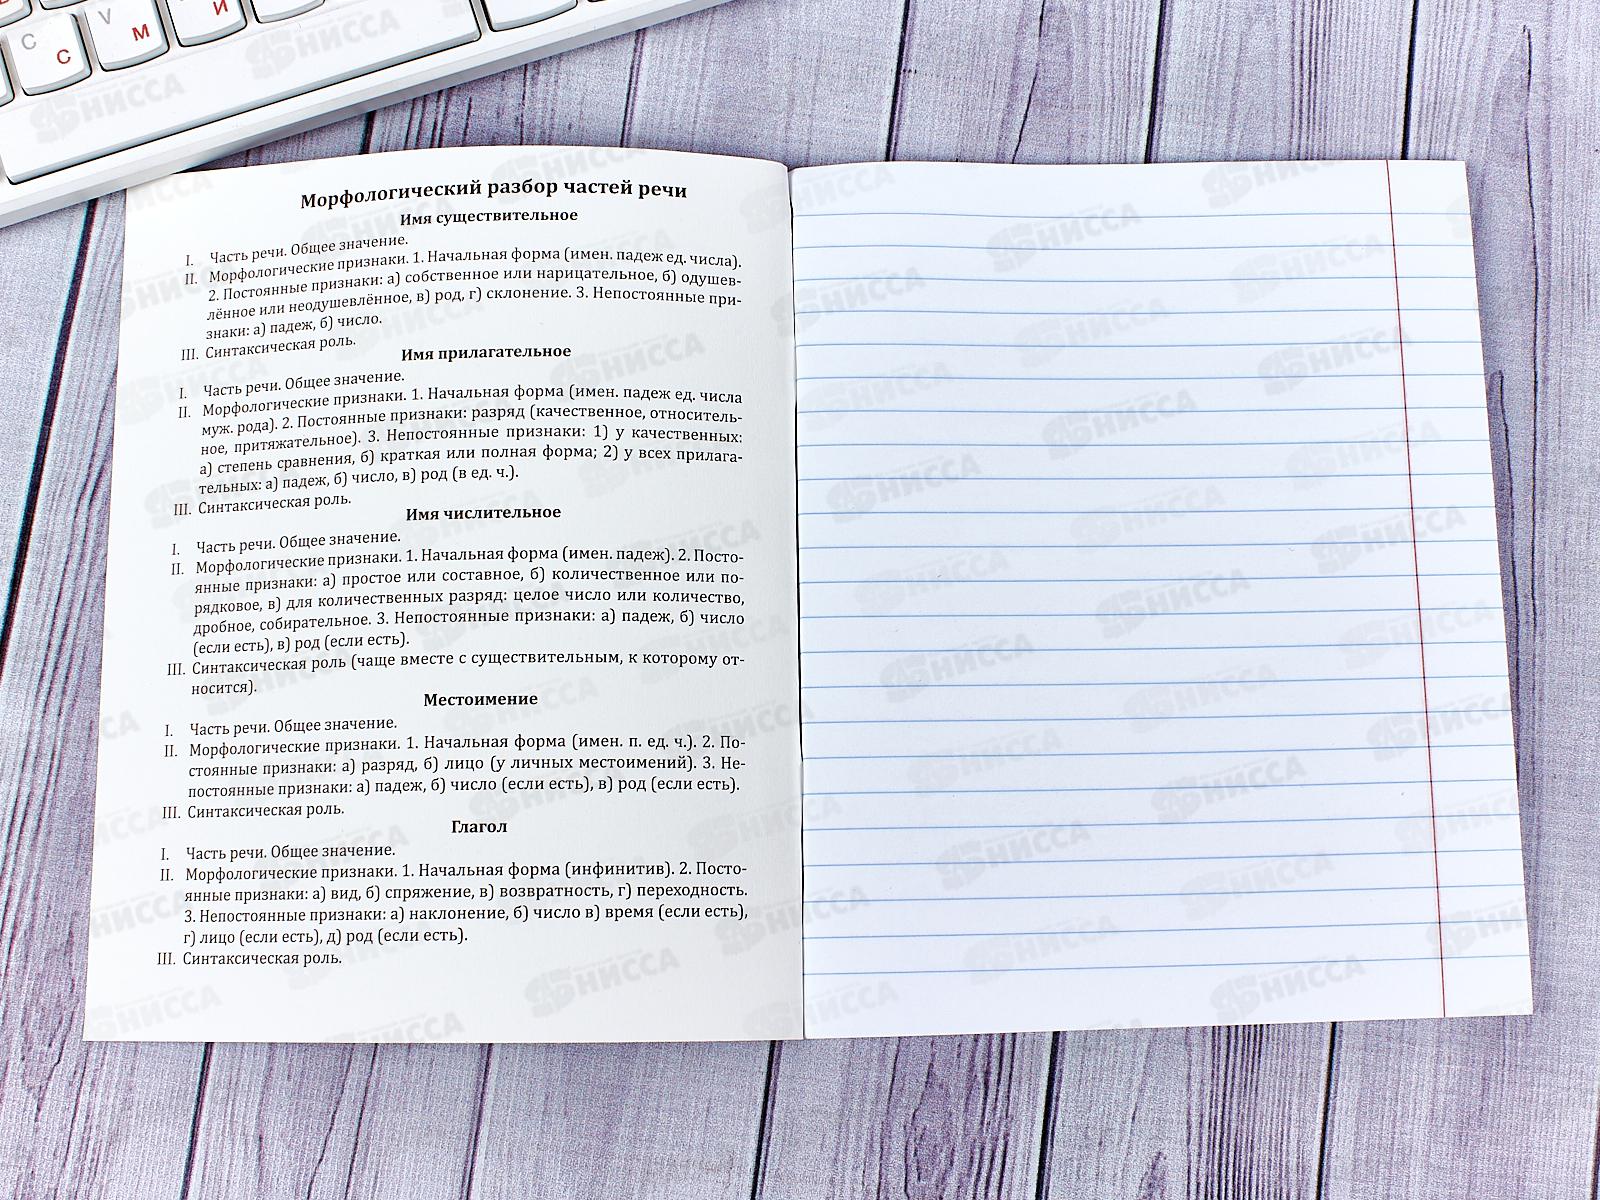 C
С
V
М
И
Морфологический разбор частей речи
Имя существительное
I. Часть речи. Общее значение.
II. Морфологические признаки. 1. Начальная форма (имен. падеж ед. числа).
2. Постоянные признаки: а) собственное или нарицательное, б) одушев-
лённое или неодушевлённое, в) род, г) склонение. 3. Непостоянные при-
знаки: а) падеж, б) число.
III. Синтаксическая роль.
Имя прилагательное
I. Часть речи. Общее значение.
II. Морфологические признаки. 1. Начальная форма (имен. падеж ед. числа
муж. рода). 2. Постоянные признаки: разряд (качественное, относитель-
ное, притяжательное). 3. Непостоянные признаки: 1) у качественных:
а) степень сравнения, б) краткая или полная форма; 2) у всех прилага-
тельных: а) падеж, б) число, в) род (в ед. ч.).
III. Синтаксическая роль.
Имя числительное
I. Часть речи. Общее значение.
II. Морфологические признаки. 1. Начальная форма (имен. падеж). 2. Посто-
янные признаки: а) простое или составное, б) количественное или по-
рядковое, в) для количественных разряд: целое число или количество,
дробное, собирательное. 3. Непостоянные признаки: а) падеж, б) число
(если есть), в) род (если есть).
III. Синтаксическая роль (чаще вместе с существительным, к которому от-
носится).
Местоимение
I. Часть речи. Общее значение.
II. Морфологические признаки. 1. Начальная форма (имен. п. ед. ч.). 2. По-
стоянные признаки: а) разряд, б) лицо (у личных местоимений). 3. Не-
постоянные признаки: а) падеж, б) число (если есть), в) род (если есть).
III. Синтаксическая роль.
Глагол
I. Часть речи. Общее значение.
II. Морфологические признаки. 1. Начальная форма (инфинитив). 2. Посто-
янные признаки: а) вид, б) спряжение, в) возвратность, г) переходность.
3. Непостоянные признаки: а) наклонение, б) число в) время (если есть),
г) лицо (если есть), д) род (если есть).
III. Синтаксическая роль.
НИССА